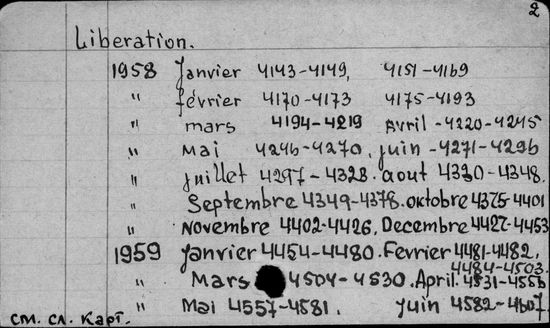 2
Liberation.
1958 Janvier 4143-4149, 4151-4169
" février 4170-4173 4175-4193
" mars 4194-4219 Avril -4220-4245
" Mai 4246-4270, juin -4271-4296
" juillet 4297-4328. aout 4320-4348.
" Septembre 4349-4378. oktobre 4375-4401
" Novembre 4402-4426, Decembre 4427-4453
1959 Janvier 4454-4480. Fevrier 4481-4482,
4484-4503.
" Mars 4504-4530. April. 4531-4556
" Mai 4557-4581. juin 4582-4607
см. сл. карт.